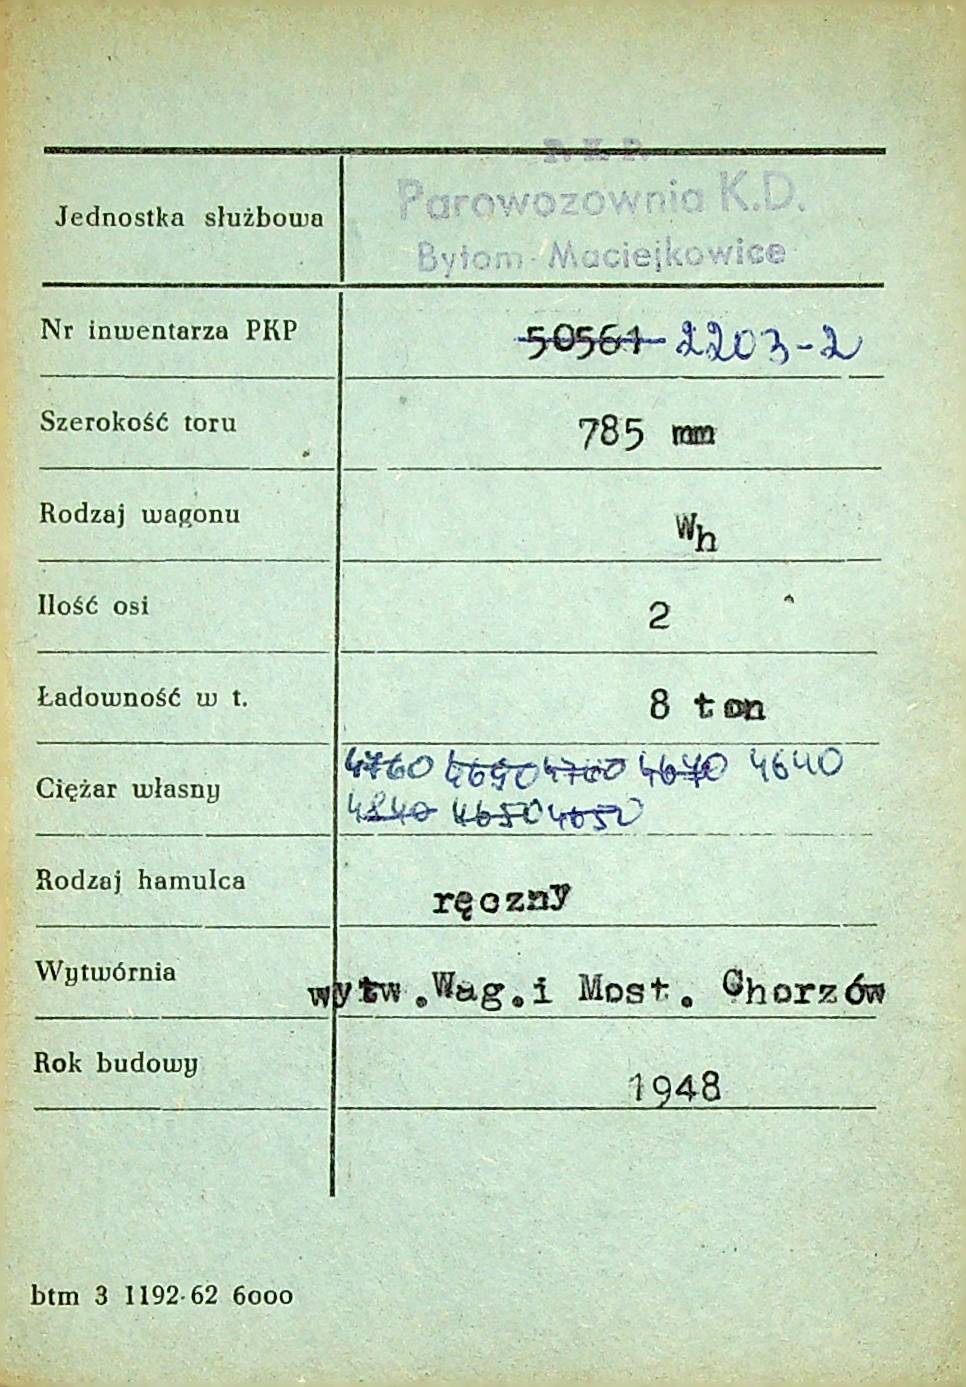 P. K. P.
Parowozownia K.D.
Jednostka służbowa
Bytom-Maciejkowice
Nr inwentarza PKP 50561 2203-2
Szerokość toru 785 mm
Rodzaj wagonu Wh
Ilość osi 2
Ładowność w t. 8 ton
4760 4690 4760 4670 4640
Ciężar własny
4840 4650 4650
Rodzaj hamulca ręczny
Wytwórnia wytw.Wag.i Most. Chorzów
Rok budowy 1948
btm 3 1192-62 6000